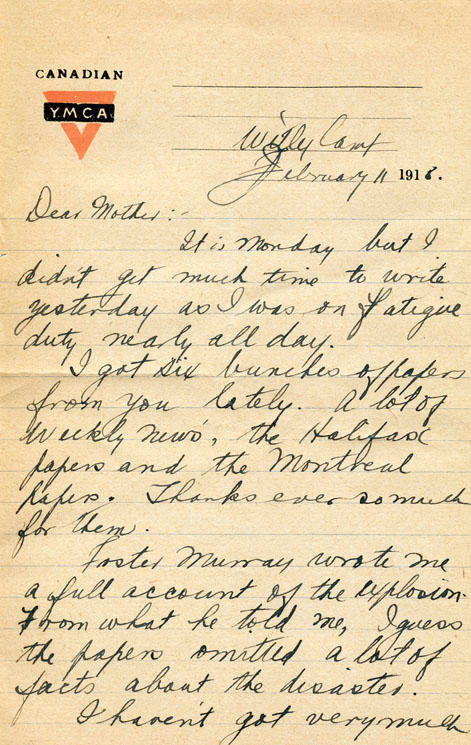 CANADIAN
Y.M.C.A.
Witley Camp
February 11 1918.
Dear Mother:-
It is Monday but I
didn't get much time to write
yesterday as I was on fatigue
duty nearly all day.
I got six bunches of papers
from you lately. A lot of
Weekly News, the Halifax
papers and the Montreal
papers. Thanks ever so much
for them.
Foster Murray wrote me
a full account of the explosion.
From what he told me, I guess
the papers omitted a lot of
facts about the disaster.
I haven't got very much